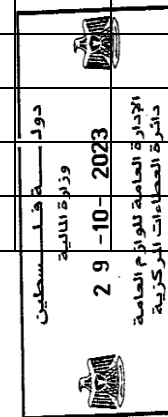 دولـــــة فـلـــــسطين
وزارة المالية
2 9 -10- 2023
الإدارة العامة للوازم العامة
دائرة العطاءات المركزية